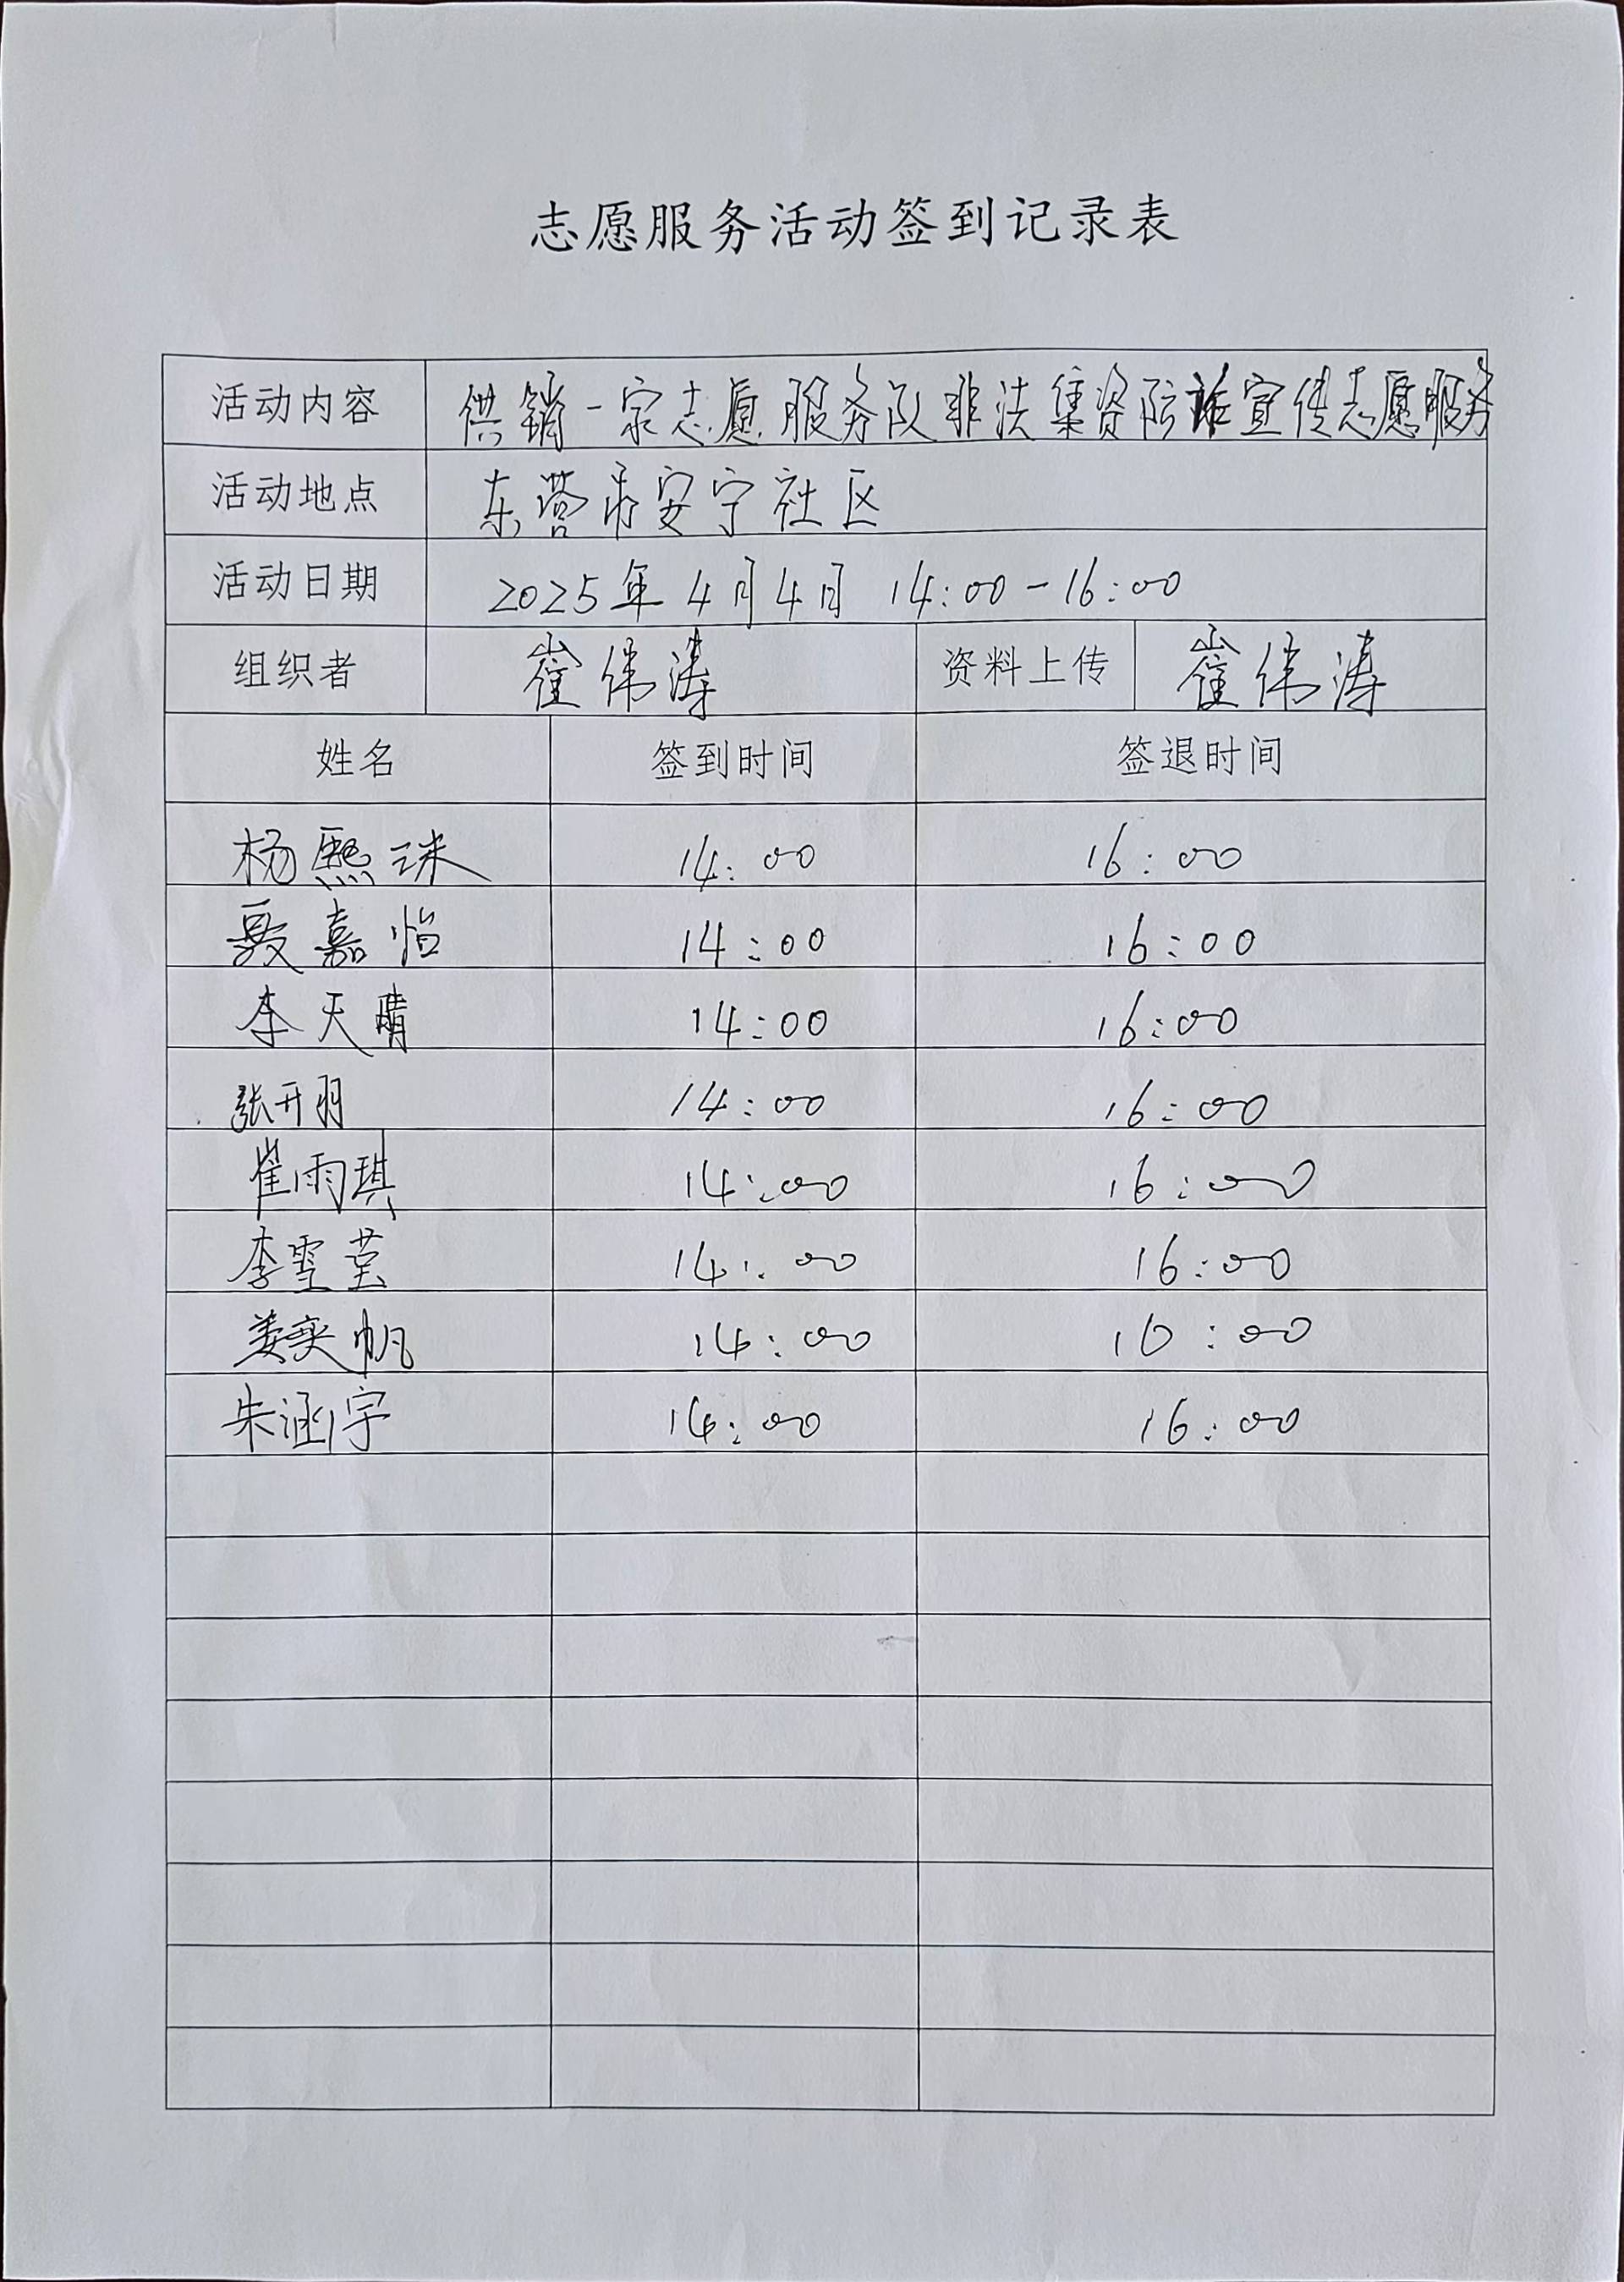 志愿服务活动签到记录表
活动内容 供销一家志愿服务队非法集资防诈宣传志愿服务
活动地点 东营市安宁社区
活动日期 2025年4月4日 14:00-16:00
组织者 崔伟涛 资料上传 崔伟涛
姓名 签到时间 签退时间
杨熙珠 14:00 16:00
聂嘉怡 14:00 16:00
李天晴 14:00 16:00
張开羽 14:00 16:00
崔雨琪 14:00 16:00
李雪莹 14:00 16:00
姜奕帆 14:00 16:00
朱涵宇 14:00 16:00